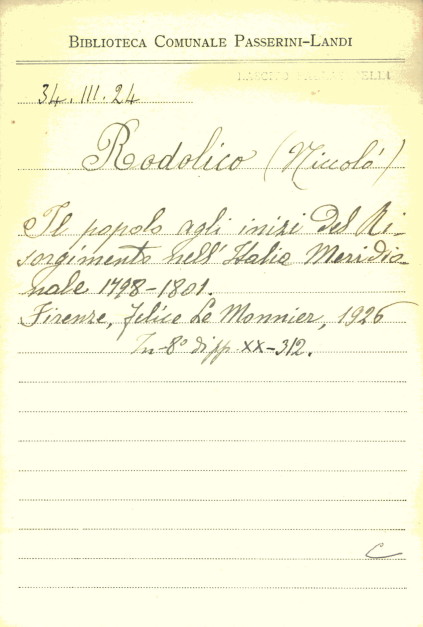 BIBLIOTECA COMUNALE PASSERINI-LANDI
34.III.24
Rodolico (Niccolò)
Il popolo agli inizi del Ri-
sorgimento nell'Italia Meridio-
nale 1798-1801.
Firenze, Felice Le Monnier, 1926
In-8° di pp. XX-312.
C